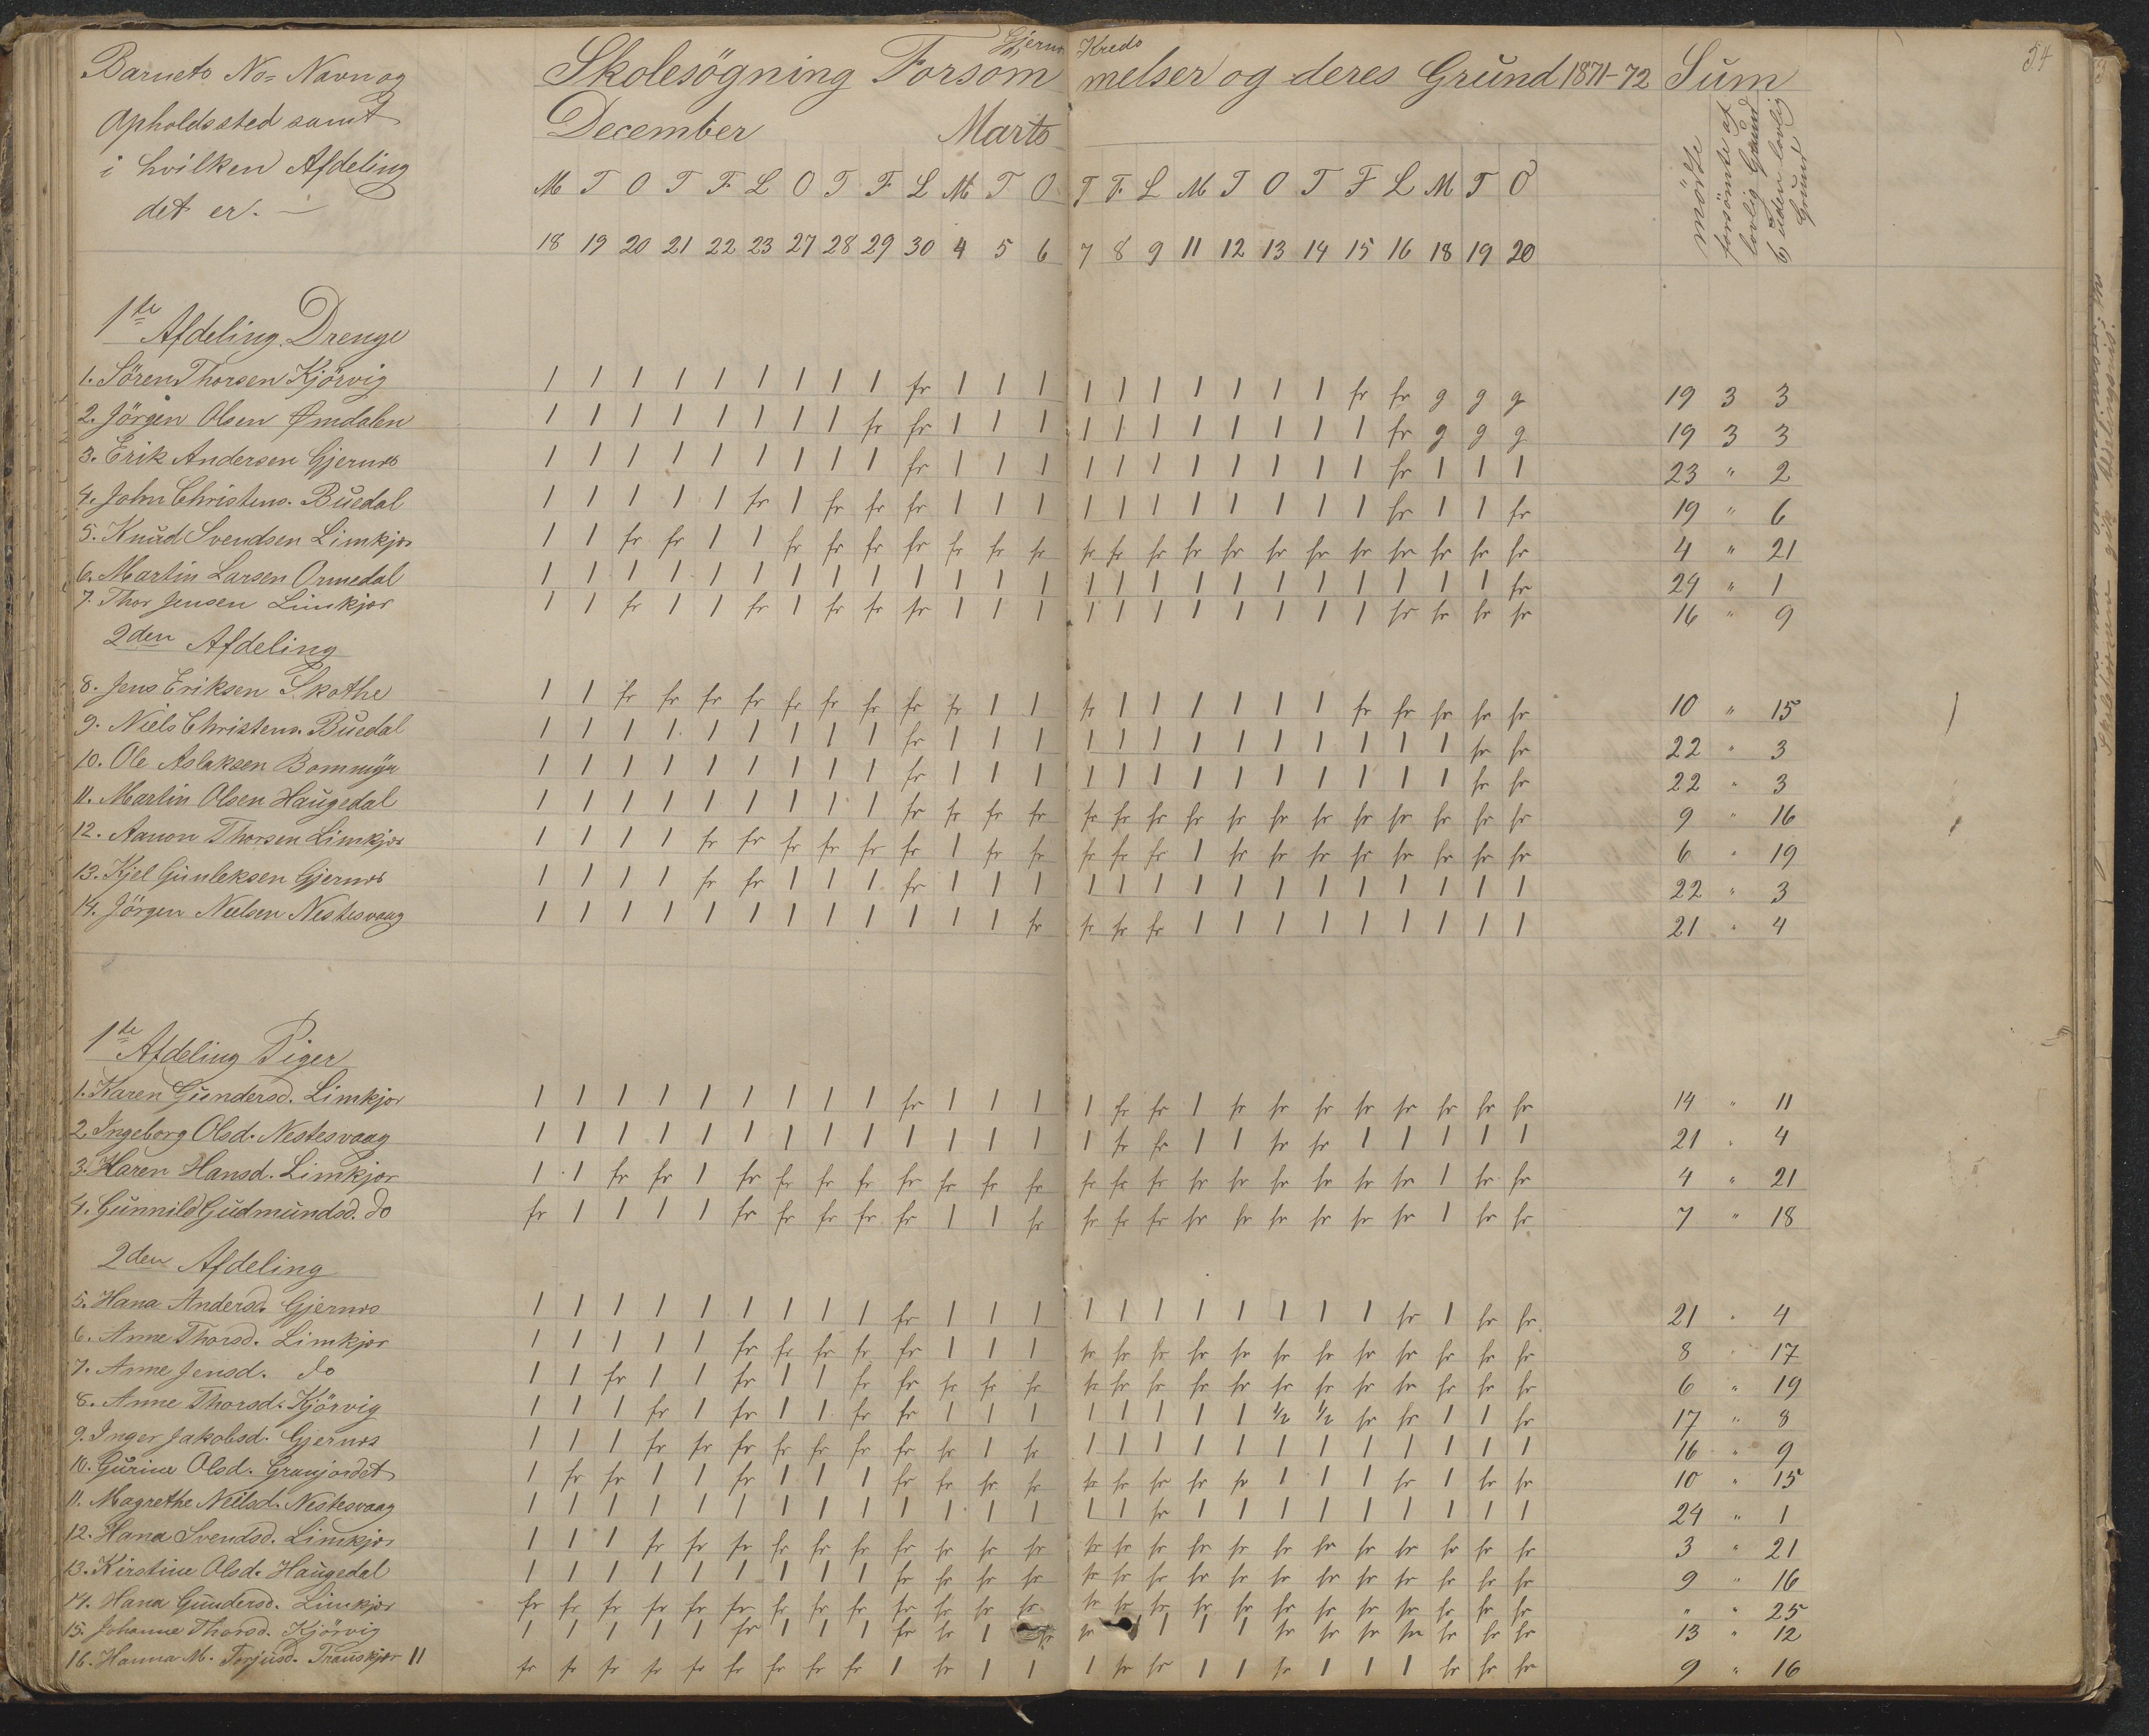 54
Gjernes Kreds
Barnets No= Navn og Skolesögning Forsömmelser og deres Grund 1871-72 Sum
Opholdssted samt December Marts
i hvilken Afdeling
det er. —
mödte
forsömte af lovlig Grund
uden lovlig Grund
M T O T F L O T F L M T O T F L M T O T F L M T O
18 19 20 21 22 23 27 28 29 30 4 5 6 7 8 9 11 12 13 14 15 16 18 19 20
1te Afdeling. Drenge
1. Sören Thorsen Kjörvig 1 1 1 1 1 1 1 1 1 fr 1 1 1 1 1 1 1 1 1 1 fr fr g g g 19 3 3
2. Jörgen Olsen Ømdalen 1 1 1 1 1 1 1 1 fr fr 1 1 1 1 1 1 1 1 1 1 1 fr g g g 19 3 3
3. Erik Andersen Gjernes 1 1 1 1 1 1 1 1 1 fr 1 1 1 1 1 1 1 1 1 1 1 fr 1 1 1 23 " 2
4. John Christens. Buedal 1 1 1 1 1 fr 1 fr fr fr 1 1 1 1 1 1 1 1 1 1 1 fr 1 1 fr 19 " 6
5. Knud Svendsen Limkjær 1 1 fr fr 1 1 fr fr fr fr fr fr fr fr fr fr fr fr fr fr fr fr fr fr fr 4 " 21
6. Martin Larsen Ormedal 1 1 1 1 1 1 1 1 1 1 1 1 1 1 1 1 1 1 1 1 1 1 1 1 fr 24 " 1
7. Thor Jensen Limkjær 1 1 fr 1 1 fr 1 fr fr fr 1 1 1 1 1 1 1 1 1 1 1 fr fr fr fr 16 " 9
2den Afdeling
8. Jens Eriksen Skothe 1 1 fr fr fr fr fr fr fr fr fr 1 1 fr 1 1 1 1 1 1 fr fr fr fr fr 10 " 15
9. Niels Christens. Buedal 1 1 1 1 1 1 1 1 1 fr 1 1 1 1 1 1 1 1 1 1 1 1 1 fr fr 22 " 3
10. Ole Aslaksen Bommyr 1 1 1 1 1 1 1 1 1 fr 1 1 1 1 1 1 1 1 1 1 1 1 1 fr fr 22 " 3
11. Martin Olsen Haugedal 1 1 1 1 1 1 1 1 1 fr fr fr fr fr fr fr fr fr fr fr fr fr fr fr fr 9 " 16
12. Aanon Thorsen Limkjær 1 1 1 1 fr fr fr fr fr fr 1 fr fr fr fr fr 1 fr fr fr fr fr fr fr fr 6 " 19
13. Kjel Gunleksen Gjernes 1 1 1 1 fr fr 1 1 1 fr 1 1 1 1 1 1 1 1 1 1 1 1 1 1 1 22 " 3
14. Jörgen Nielsen Nestesvaag 1 1 1 1 1 1 1 1 1 1 1 1 fr fr fr fr 1 1 1 1 1 1 1 1 1 21 " 4
1te Afdeling Piger
1. Karen Gundersd. Limkjær 1 1 1 1 1 1 1 1 1 fr 1 1 1 1 fr fr 1 fr fr fr fr fr fr fr fr 14 " 11
2. Ingeborg Olsd. Nestesvaag 1 1 1 1 1 1 1 1 1 1 1 1 1 1 fr fr 1 1 fr fr 1 1 1 1 1 21 " 4
3. Karen Hansd. Limkjær 1 1 fr fr 1 fr fr fr fr fr fr fr fr fr fr fr fr fr fr fr fr fr 1 fr fr 4 " 21
4. Gunnild Gudmundsd. do fr 1 1 1 1 fr fr fr fr fr 1 1 fr fr fr fr fr fr fr fr fr fr 1 fr fr 7 " 18
2den Afdeling
5. Hana Andersd. Gjernes 1 1 1 1 1 1 1 1 1 fr 1 1 1 1 1 1 1 1 1 1 1 fr 1 fr fr 21 " 4
6. Anne Thorsd. Limkjær 1 1 1 1 1 fr fr fr fr fr 1 1 1 fr fr fr fr fr fr fr fr fr fr fr fr 8 " 17
7. Anne Jensd. do 1 1 fr 1 1 fr 1 1 fr fr fr fr fr fr fr fr fr fr fr fr fr fr fr fr fr 6 " 19
8. Anne Thorsd. Kjörvig 1 1 1 fr 1 fr 1 1 fr fr 1 1 1 1 1 1 1 1 ½ ½ fr fr 1 1 fr 17 " 8
9. Inger Jakobsd. Gjernes 1 1 1 fr fr fr fr fr fr fr fr 1 fr 1 1 1 1 1 1 1 1 1 1 1 1 16 " 9
10. Gurine Olsd. Granjordet 1 fr fr 1 1 fr 1 1 1 fr fr fr fr fr fr fr fr fr 1 1 1 fr 1 fr fr 10 " 15
11. Magrethe Neilsd. Nestesvaag 1 1 1 1 1 1 1 1 1 1 1 1 1 1 1 fr 1 1 1 1 1 1 1 1 1 24 " 1
12. Hana Svendsd. Limkjær 1 1 1 fr fr fr fr fr fr fr fr fr fr fr fr fr fr fr fr fr fr fr fr fr fr 3 " 21
13. Kirstine Olsd. Haugedal 1 1 1 1 1 1 1 1 1 fr fr fr fr fr fr fr fr fr fr fr fr fr fr fr fr 9 " 16
14. Hana Gundersd. Limkjær fr fr fr fr fr fr fr fr fr fr fr fr fr fr fr fr fr fr fr fr fr fr fr fr fr " " 25
15. Johanne Thorsd. Kjörvig 1 1 1 1 1 fr 1 1 1 fr fr 1 fr fr 1 1 1 1 fr fr fr fr fr fr fr 13 " 12
16. Hanna M. Torjusd. Trauskjær 11 fr fr fr fr fr fr fr fr fr 1 fr 1 1 1 fr fr 1 1 fr 1 1 1 fr fr fr 9 " 16